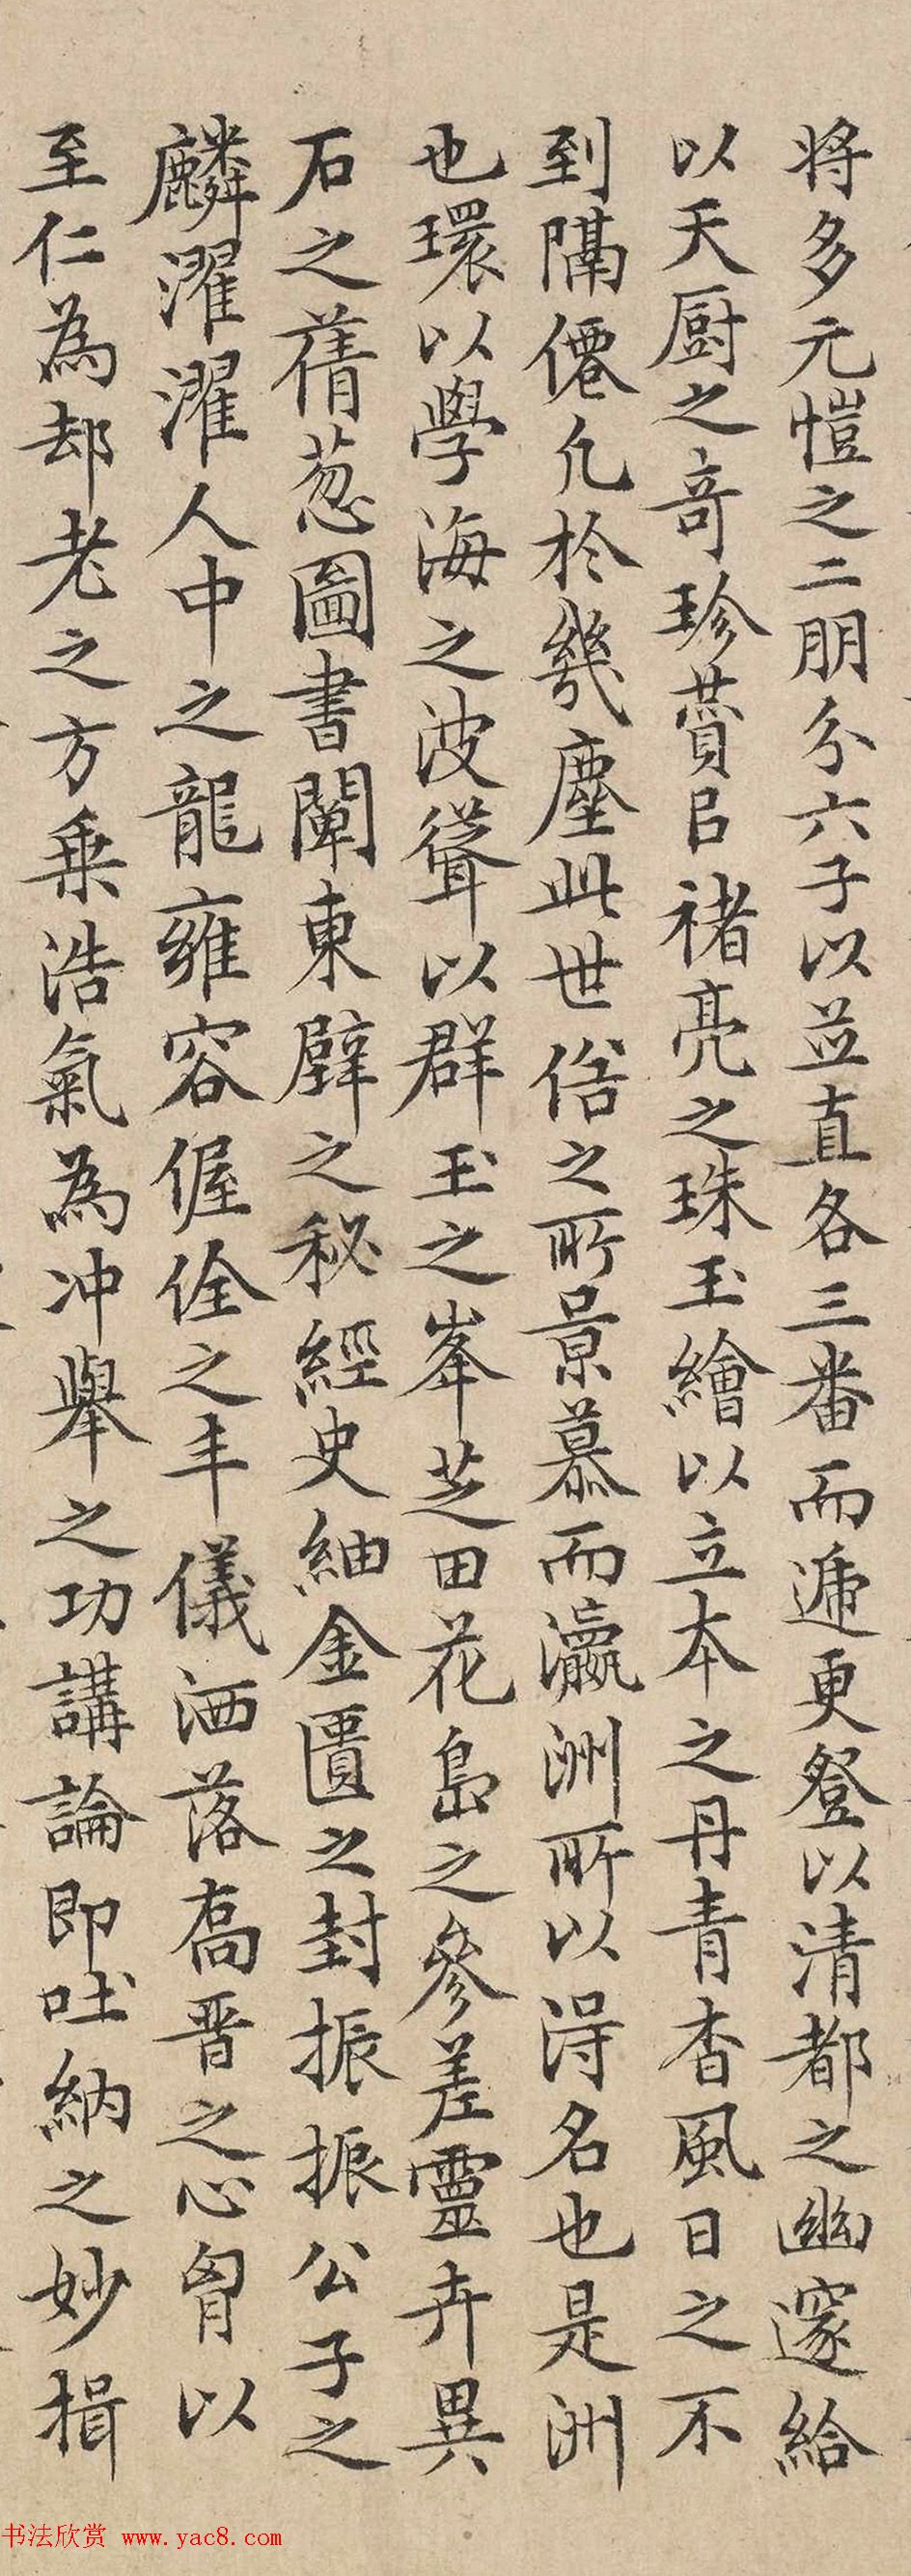 将多元愷之二朋分六子以並直各三番而遞更登以清都之幽邃給
以天厨之奇珍蕒㠯褚亮之珠玉繪以立本之丹青杳風日之不
到隔僊凢扵幾塵此世俗之所景慕而瀛洲所以淂名也是洲
也環以學海之波聳以群玉之峯芝田花島之參差靈卉異
石之蒨葱圖書闡東壁之秘經史紬金匱之封振振公子之
麟濯濯人中之龍雍容偓佺之丰儀洒落喬晋之心胷以
至仁為却老之方乗浩氣為冲舉之功講論即吐納之妙揖
书法欣赏 www.yac8.com